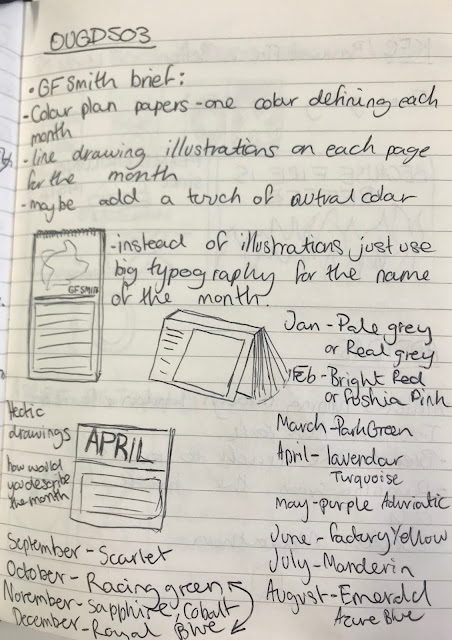 OUGD503
• GFSmith brief:
- Colour plan papers - one colour defining each
month
- line drawing illustrations on each page
for the month
- maybe add a touch of autral colour
- instead of illustrations, just use
big typography for the name
of the month.
GFSMITH
Jan - Pale grey
or Real grey
Feb - Bright Red
or Foshia Pink
March - Park Green
April - lavendar
Turquoise
May - purple Adriatic
June - Factory Yellow
July - Manderin
August - Emerald
Azure Blue
Hectic
drawings
how would
you describe
the month
APRIL
September - Scarlet
October - Racing green
November - Sapphire / Cobalt
December - Royal Blue